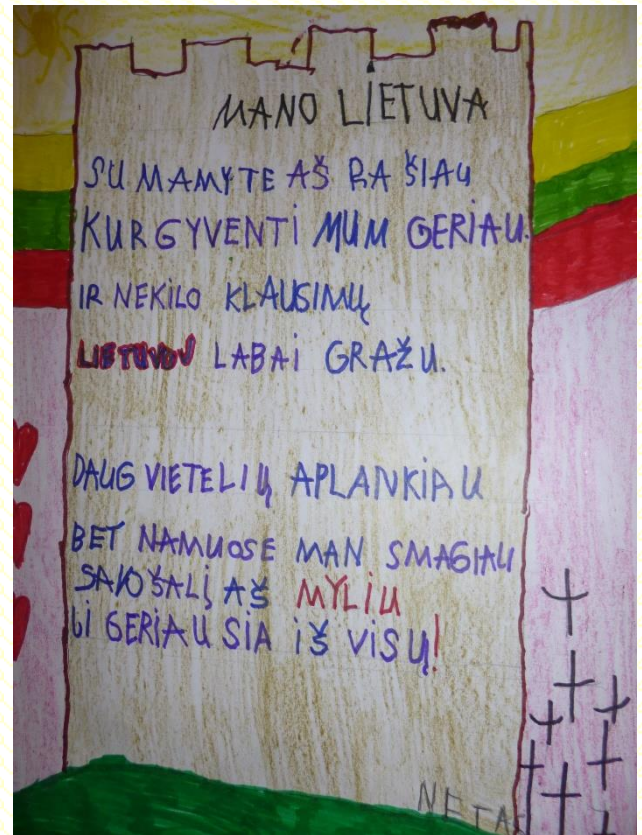 MANO LIETUVA
SU MAMYTE AŠ RAŠIAU
KUR GYVENTI MUM GERIAU.
IR NEKILO KLAUSIMŲ
LIETUVOJ LABAI GRAŽU.
DAUG VIETELIŲ APLANKIAU
BET NAMUOSE MAN SMAGIAU
SAVO ŠALĮ AŠ MYLIU
JI GERIAUSIA IŠ VISŲ!